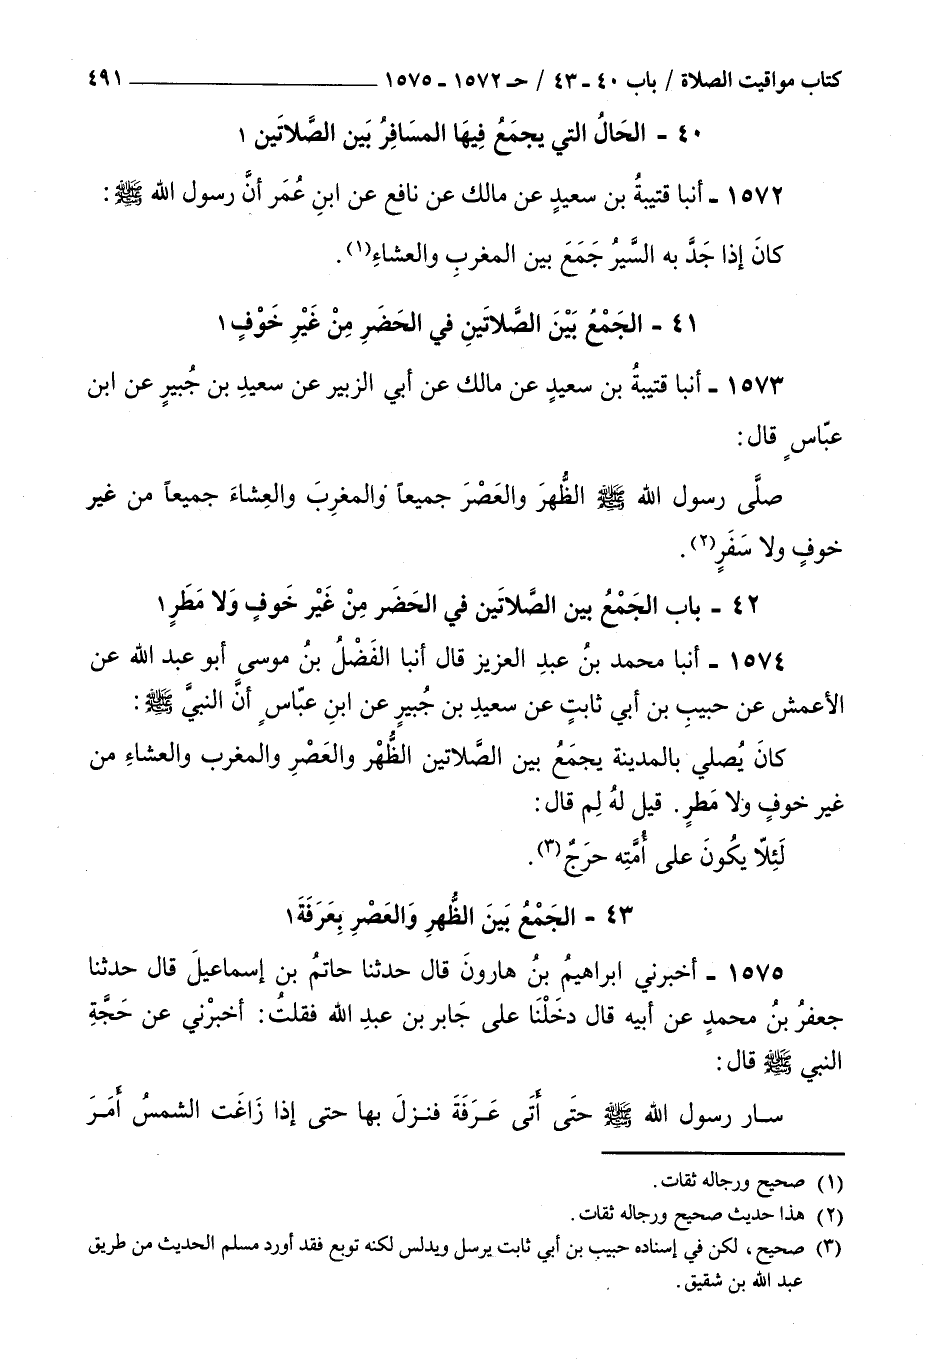 كتاب مواقيت الصلاة / باب ٤٠ ـ ٤٣ / حـ ١٥٧٢ ـ ١٥٧٥ ــــــــــــــــــــ ٤٩١
٤٠ - الحَالُ التي يجمَعُ فِيهَا المسَافِرُ بَين الصَّلاتَين ١
١٥٧٢ ـ أنبا قتيبةُ بن سعيدٍ عن مالك عن نافع عن ابنِ عُمَر أنَّ رسول الله ﷺ:
كانَ إذا جَدَّ به السَّيرُ جَمَعَ بين المغربِ والعشاءِ(١).
٤١ - الجَمْعُ بَيْنَ الصَّلاتَينِ في الحَضَرِ مِنْ غَيْرِ خَوْفٍ ١
١٥٧٣ ـ أنبا قتيبةُ بن سعيدٍ عن مالك عن أبي الزبير عن سعيدِ بن جُبيرٍ عن ابن
عبّاسٍ قال:
صلَّى رسول الله ﷺ الظُّهرَ والعَصْرَ جميعاً والمغرِبَ والعِشاءَ جميعاً من غير
خوفٍ ولا سَفَرٍ(٢).
٤٢ - باب الجَمْعُ بين الصَّلاتَين في الحَضَر مِنْ غَيْر خَوفٍ وَلا مَطَرٍ ١
١٥٧٤ ـ أنبا محمد بنُ عبدِ العزيز قال أنبا الفَضْلُ بنُ موسى أبو عبد الله عن
الأعمش عن حبيبِ بن أبي ثابتٍ عن سعيدِ بن جُبيرٍ عن ابنِ عبّاسٍ أنَّ النبيَّ ﷺ:
كانَ يُصلي بالمدينة يجمَعُ بين الصَّلاتين الظُّهْر والعَصْرِ والمغرب والعشاءِ من
غير خوفٍ ولا مَطرٍ. قيل لهُ لِم قال:
لَئِلّا يكُونَ على أُمَّتِه حرَجٌ(٣).
٤٣ - الجَمْعُ بَينَ الظُّهرِ وَالعَصْرِ بِعَرَفَةَ ١
١٥٧٥ ـ أخبرني ابراهيمُ بنُ هارونَ قال حدثنا حاتمُ بن إسماعيلَ قال حدثنا
جعفرُ بنُ محمدٍ عن أبيه قال دخَلْنَا على جَابر بن عبدِ الله فقلتُ: أخبرْني عن حَجَّةِ
النبي ﷺ قال:
سـار رسول الله ﷺ حتَى أَتَى عَـرَفَةَ فنزلَ بها حتى إذا زَاغَت الشمسُ أَمَرَ
(١) صحيح ورجاله ثقات.
(٢) هذا حديث صحيح ورجاله ثقات.
(٣) صحيح، لكن في إسناده حبيب بن أبي ثابت يرسل ويدلس لكنه توبع فقد أورد مسلم الحديث من طريق
عبد الله بن شقيق.